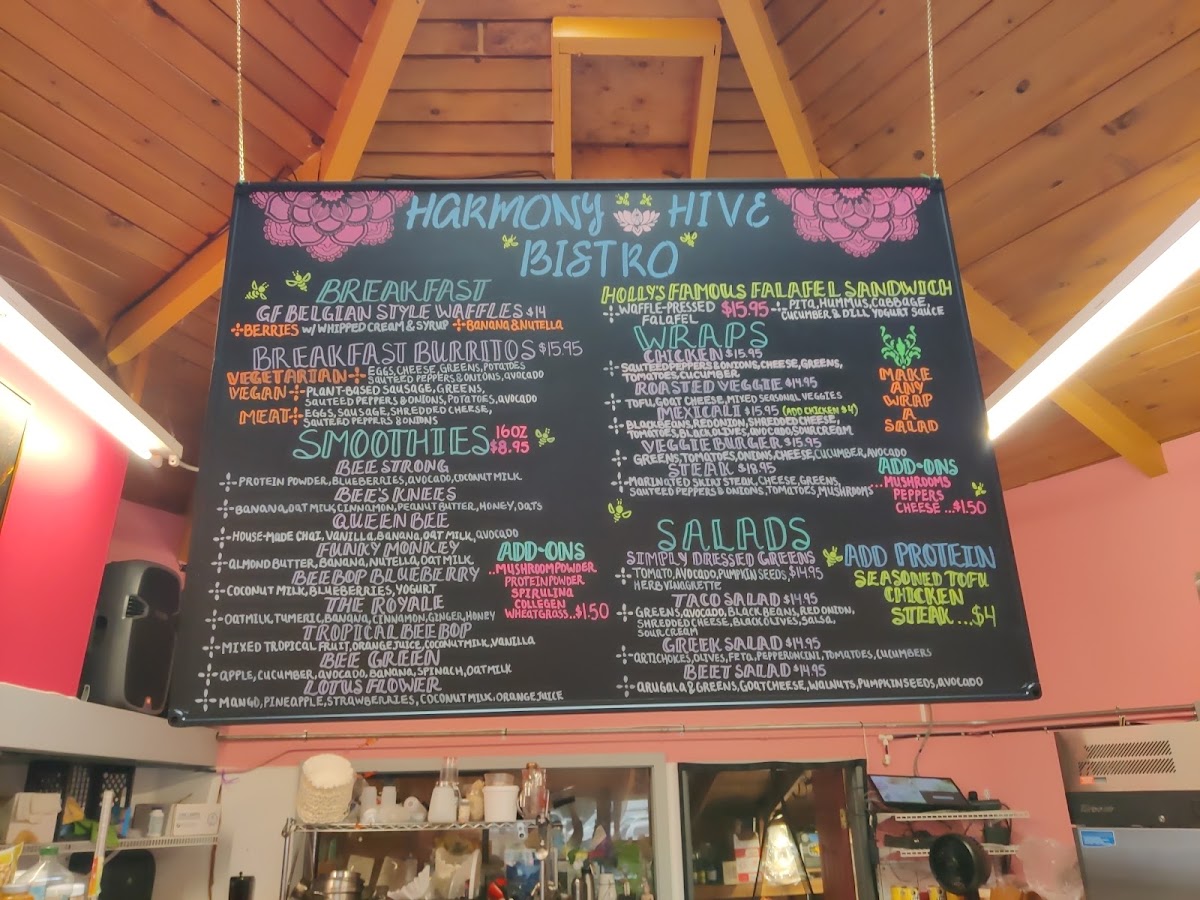 HARMONY HIVE
BISTRO
BREAKFAST
GF BELGIAN STYLE WAFFLES $14
BERRIES W/ WHIPPED CREAM & SYRUP BANANA & NUTELLA
BREAKFAST BURRITOS $15.95
VEGETARIAN EGGS, CHEESE, GREENS, POTATOES
SAUTEED PEPPERS & ONIONS, AVOCADO
VEGAN PLANT-BASED SAUSAGE, GREENS,
SAUTEED PEPPERS & ONIONS, POTATOES, AVOCADO
MEAT EGGS, SAUSAGE, SHREDDED CHEESE,
SAUTEED PEPPERS & ONIONS
SMOOTHIES 16OZ
$8.95
BEE STRONG
PROTEIN POWDER, BLUEBERRIES, AVOCADO, COCONUT MILK
BEE'S KNEES
BANANA, OAT MILK, CINNAMON, PEANUT BUTTER, HONEY, OATS
QUEEN BEE
HOUSE-MADE CHAI, VANILLA, BANANA, OAT MILK, AVOCADO
FUNKY MONKEY
ALMOND BUTTER, BANANA, NUTELLA, OAT MILK
BEEBOP BLUEBERRY
COCONUT MILK, BLUEBERRIES, YOGURT
THE ROYALE
OATMILK, TUMERIC, BANANA, CINNAMON, GINGER, HONEY
TROPICAL BEE BOP
MIXED TROPICAL FRUIT, ORANGE JUICE, COCONUT MILK, VANILLA
BEE GREEN
APPLE, CUCUMBER, AVOCADO, BANANA, SPINACH, OATMILK
LOTUS FLOWER
MANGO, PINEAPPLE, STRAWBERRIES, COCONUT MILK, ORANGE JUICE
ADD-ONS
...MUSHROOM POWDER
PROTEIN POWDER
SPIRULINA
COLLEGEN
WHEATGRASS...$1.50
HOLLY'S FAMOUS FALAFEL SANDWICH
WAFFLE-PRESSED $15.95 PITA, HUMMUS, CABBAGE,
FALAFEL CUCUMBER & DILL YOGURT SAUCE
WRAPS
CHICKEN $15.95
SAUTEED PEPPERS & ONIONS, CHEESE, GREENS,
TOMATOES, CUCUMBER
ROASTED VEGGIE $14.95
TOFU, GOAT CHEESE, MIXED SEASONAL VEGGIES
MEXICALI $15.95 (ADD CHICKEN $4)
BLACK BEANS, RED ONION, SHREDDED CHEESE,
TOMATOES, BLACK OLIVES, AVOCADO, SOUR CREAM
VEGGIE BURGER $15.95
GREENS, TOMATOES, ONIONS, CHEESE, CUCUMBER, AVOCADO
STEAK $18.95
MARINATED SKIRT STEAK, CHEESE, GREENS,
SAUTEED PEPPERS & ONIONS, TOMATOES, MUSHROOMS
MAKE
ANY
WRAP
A
SALAD
ADD-ONS
...MUSHROOMS
PEPPERS
CHEESE...$1.50
SALADS
SIMPLY DRESSED GREENS
TOMATO, AVOCADO, PUMPKIN SEEDS, $14.95
HERB VINAGRETTE
TACO SALAD $14.95
GREENS, AVOCADO, BLACK BEANS, RED ONION,
SHREDDED CHEESE, BLACK OLIVES, SALSA,
SOUR CREAM
GREEK SALAD $14.95
ARTICHOKES, OLIVES, FETA, PEPPERONCINI, TOMATOES, CUCUMBERS
BEET SALAD $14.95
ARUGALA & GREENS, GOAT CHEESE, WALNUTS, PUMPKIN SEEDS, AVOCADO
ADD PROTEIN
SEASONED TOFU
CHICKEN
STEAK...$4